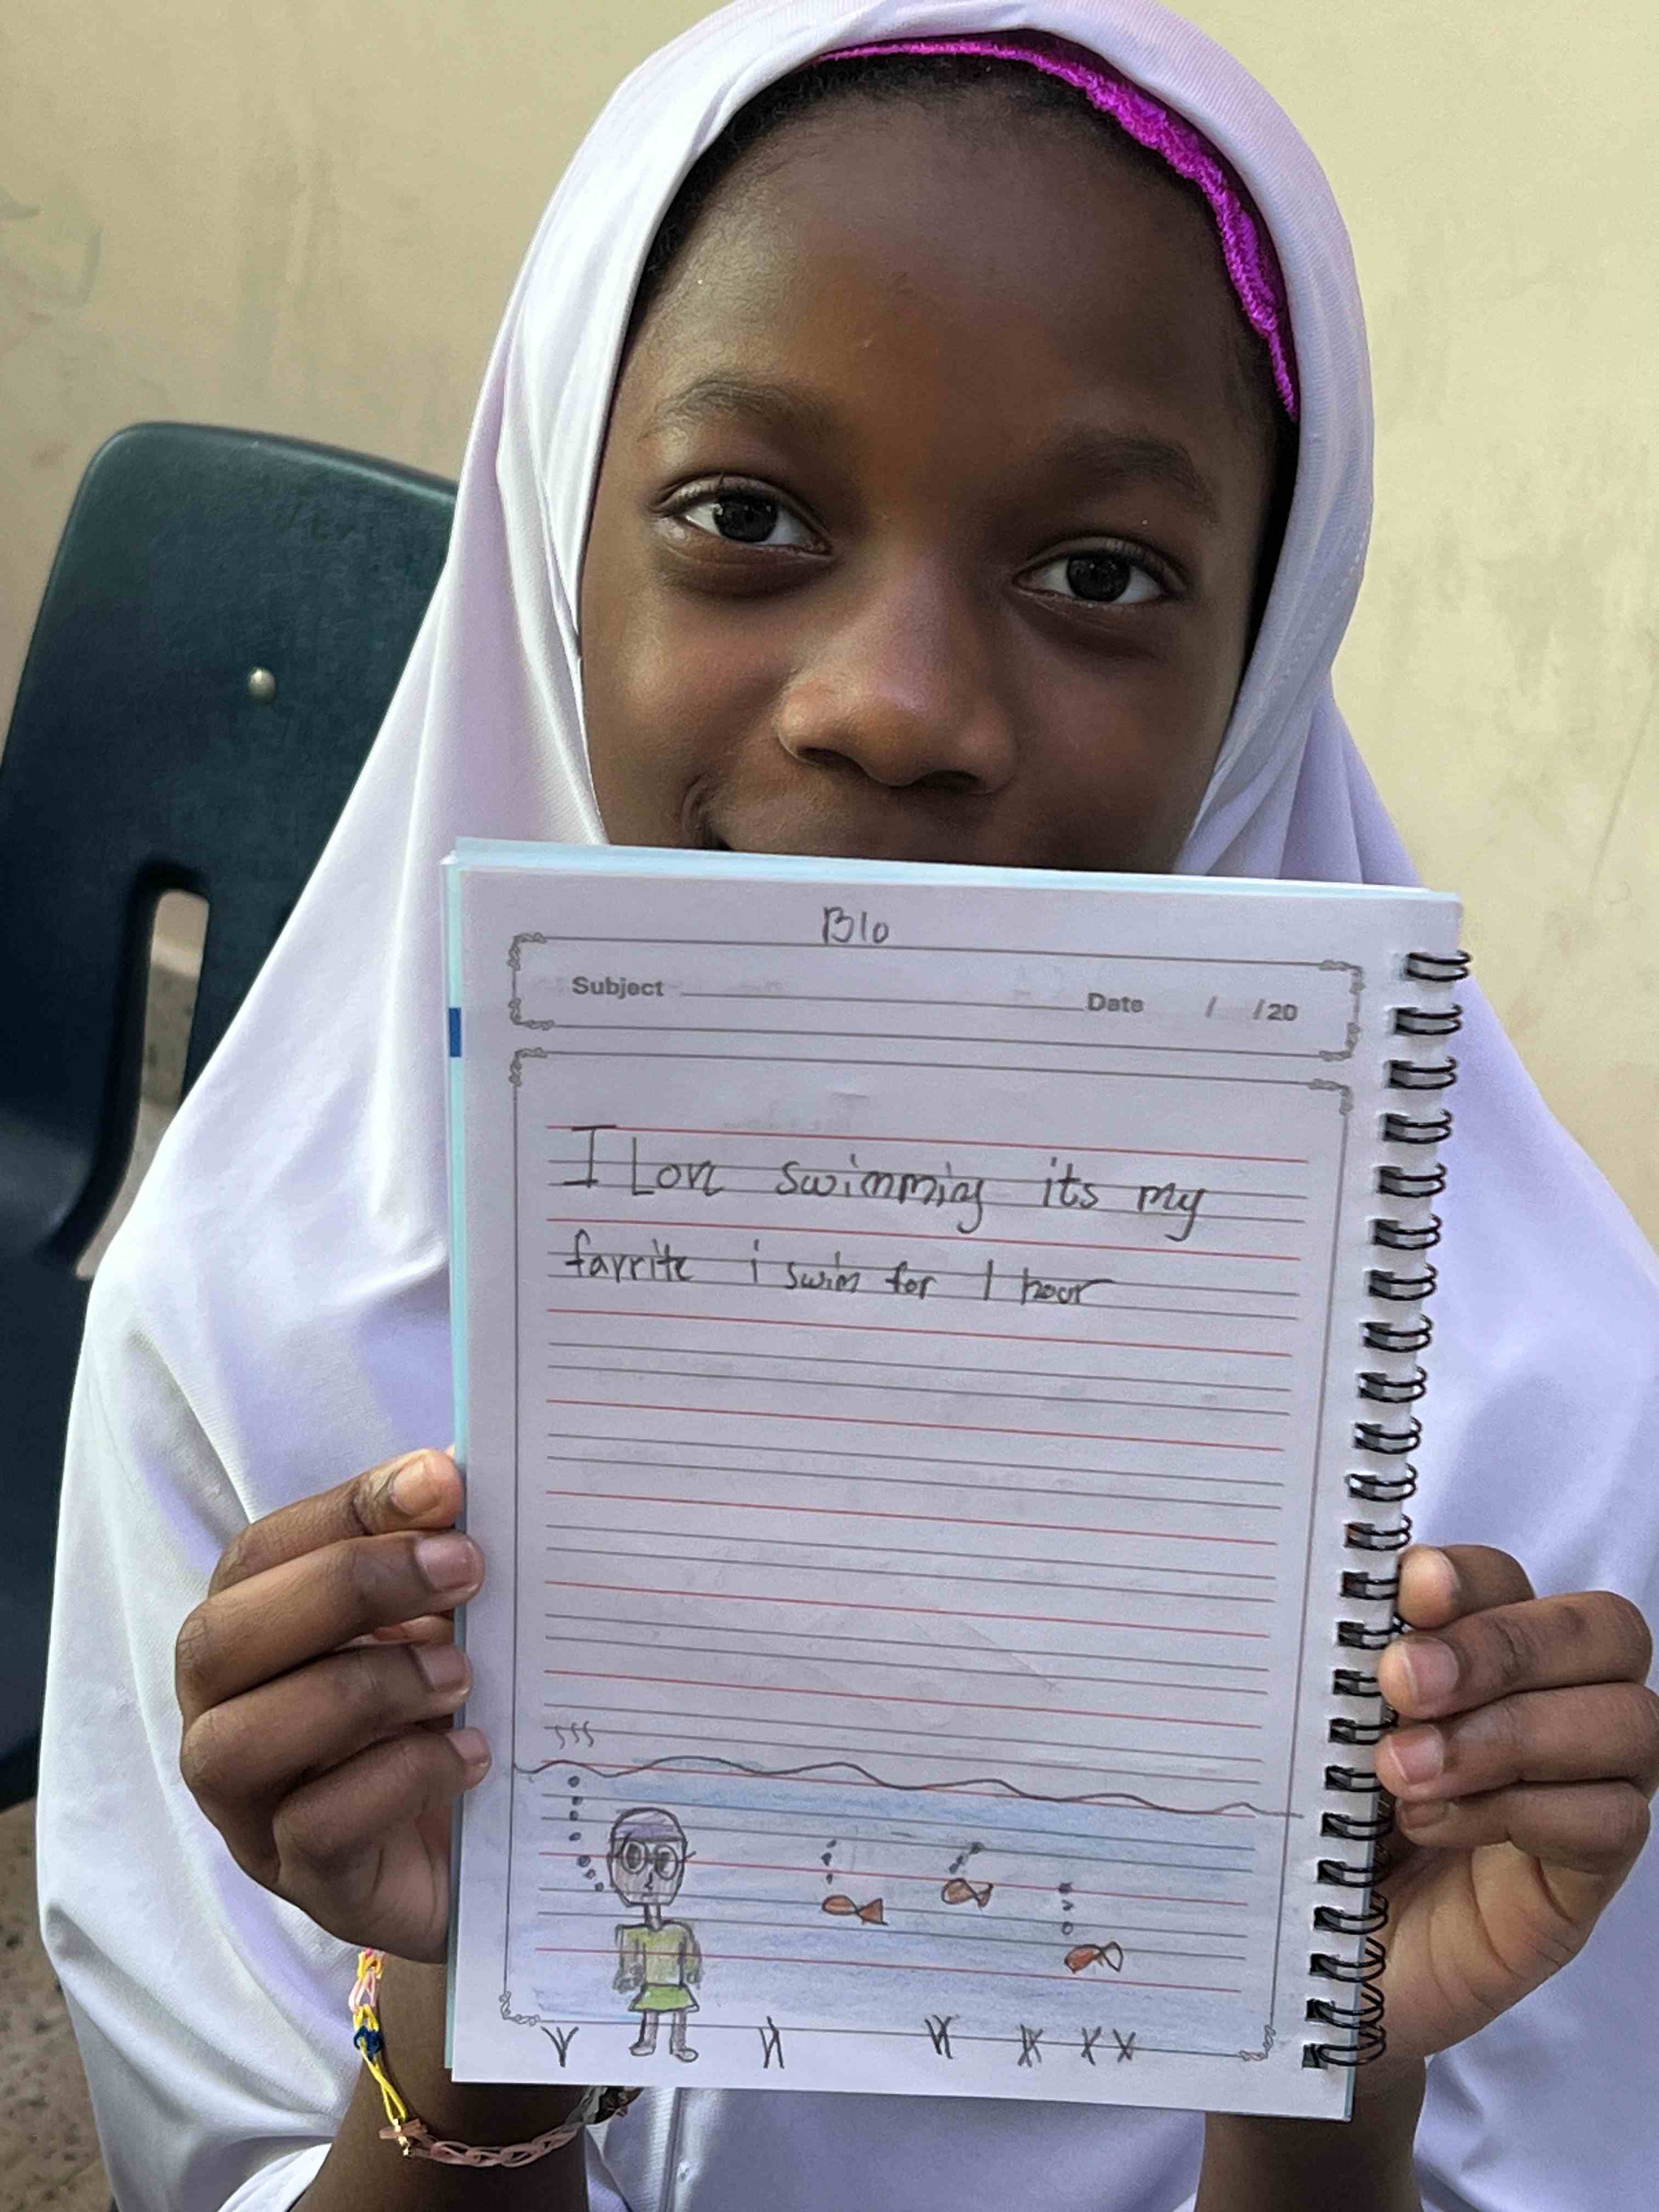 Blo
Subject Date / /20
I Love swimming its my
favrite i swim for 1 hour